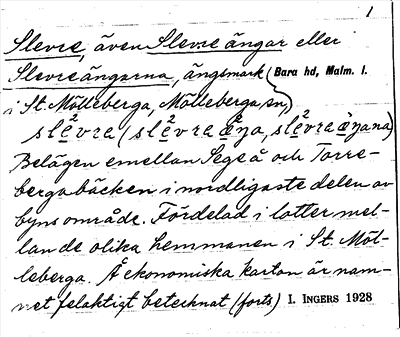 1
Slevre, även Slevre ängar eller
Slevreängarna, ängsmark (Bara hd, Malm. l.
i St. Mölleberga, Mölleberga sn,)
slèvre (slèvre æŋa, slèvre æŋana)
Belägen emellan Segeå och Torre-
bergabäcken i nordligaste delen av
byns område. Fördelad i lotter mel-
lan de olika hemmanen i St. Möl-
leberga. Å ekonomiska kartan är nam-
net felaktigt betecknat (forts) I. INGERS 1928